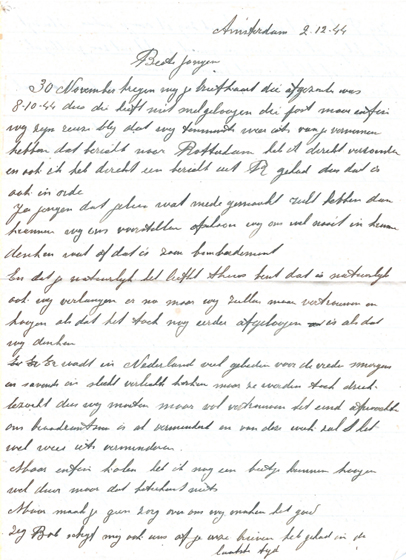 Amsterdam 2-12-44
Beste jongen
30 November kregen wij je briefkaart die afgezonden was
8-10-44 dus die heeft niet snel gelopen die post maar enfin
wij zijn reuze blij dat wij tenminste weer iets van je vernomen
hebben dat bericht naar Rotterdam heb ik direkt verzonden
en ook ik heb direkt een bericht uit R gehad dus dat is
ook in orde
Ja jongen dat jullie wat mede gemaakt zult hebben dan
kunnen wij ons voorstellen ofschoon wij ons wel nooit in kunnen
denken wat of dat is zoon bombardement
En dat je natuurlijk het liefst thuis bent dat is natuurlijk
ook wij verlangen er no maar wij zullen maar vertrouwen en
hopen als dat het toch nog eerder afgelopen is als dat
wij denken
Er wordt in Nederland veel gebeden voor de vrede smorgens
en savonds in slecht verlichte kerken maar ze worden toch druk
bezocht dus wij moeten maar vol vertrouwen het eind afwachten
ons broodrantsoen is al verminderd en van deze week zal het
wel weer iets verminderen
Maar enfin kolen heb ik nog een beetje kunnen krijgen
wel duur maar dat betekent niets
Maar maak je geen zorg over ons wij maken het goed
Zeg Bob schrijf mij ook eens of je onze brieven hebt gehad in de
laatste tijd